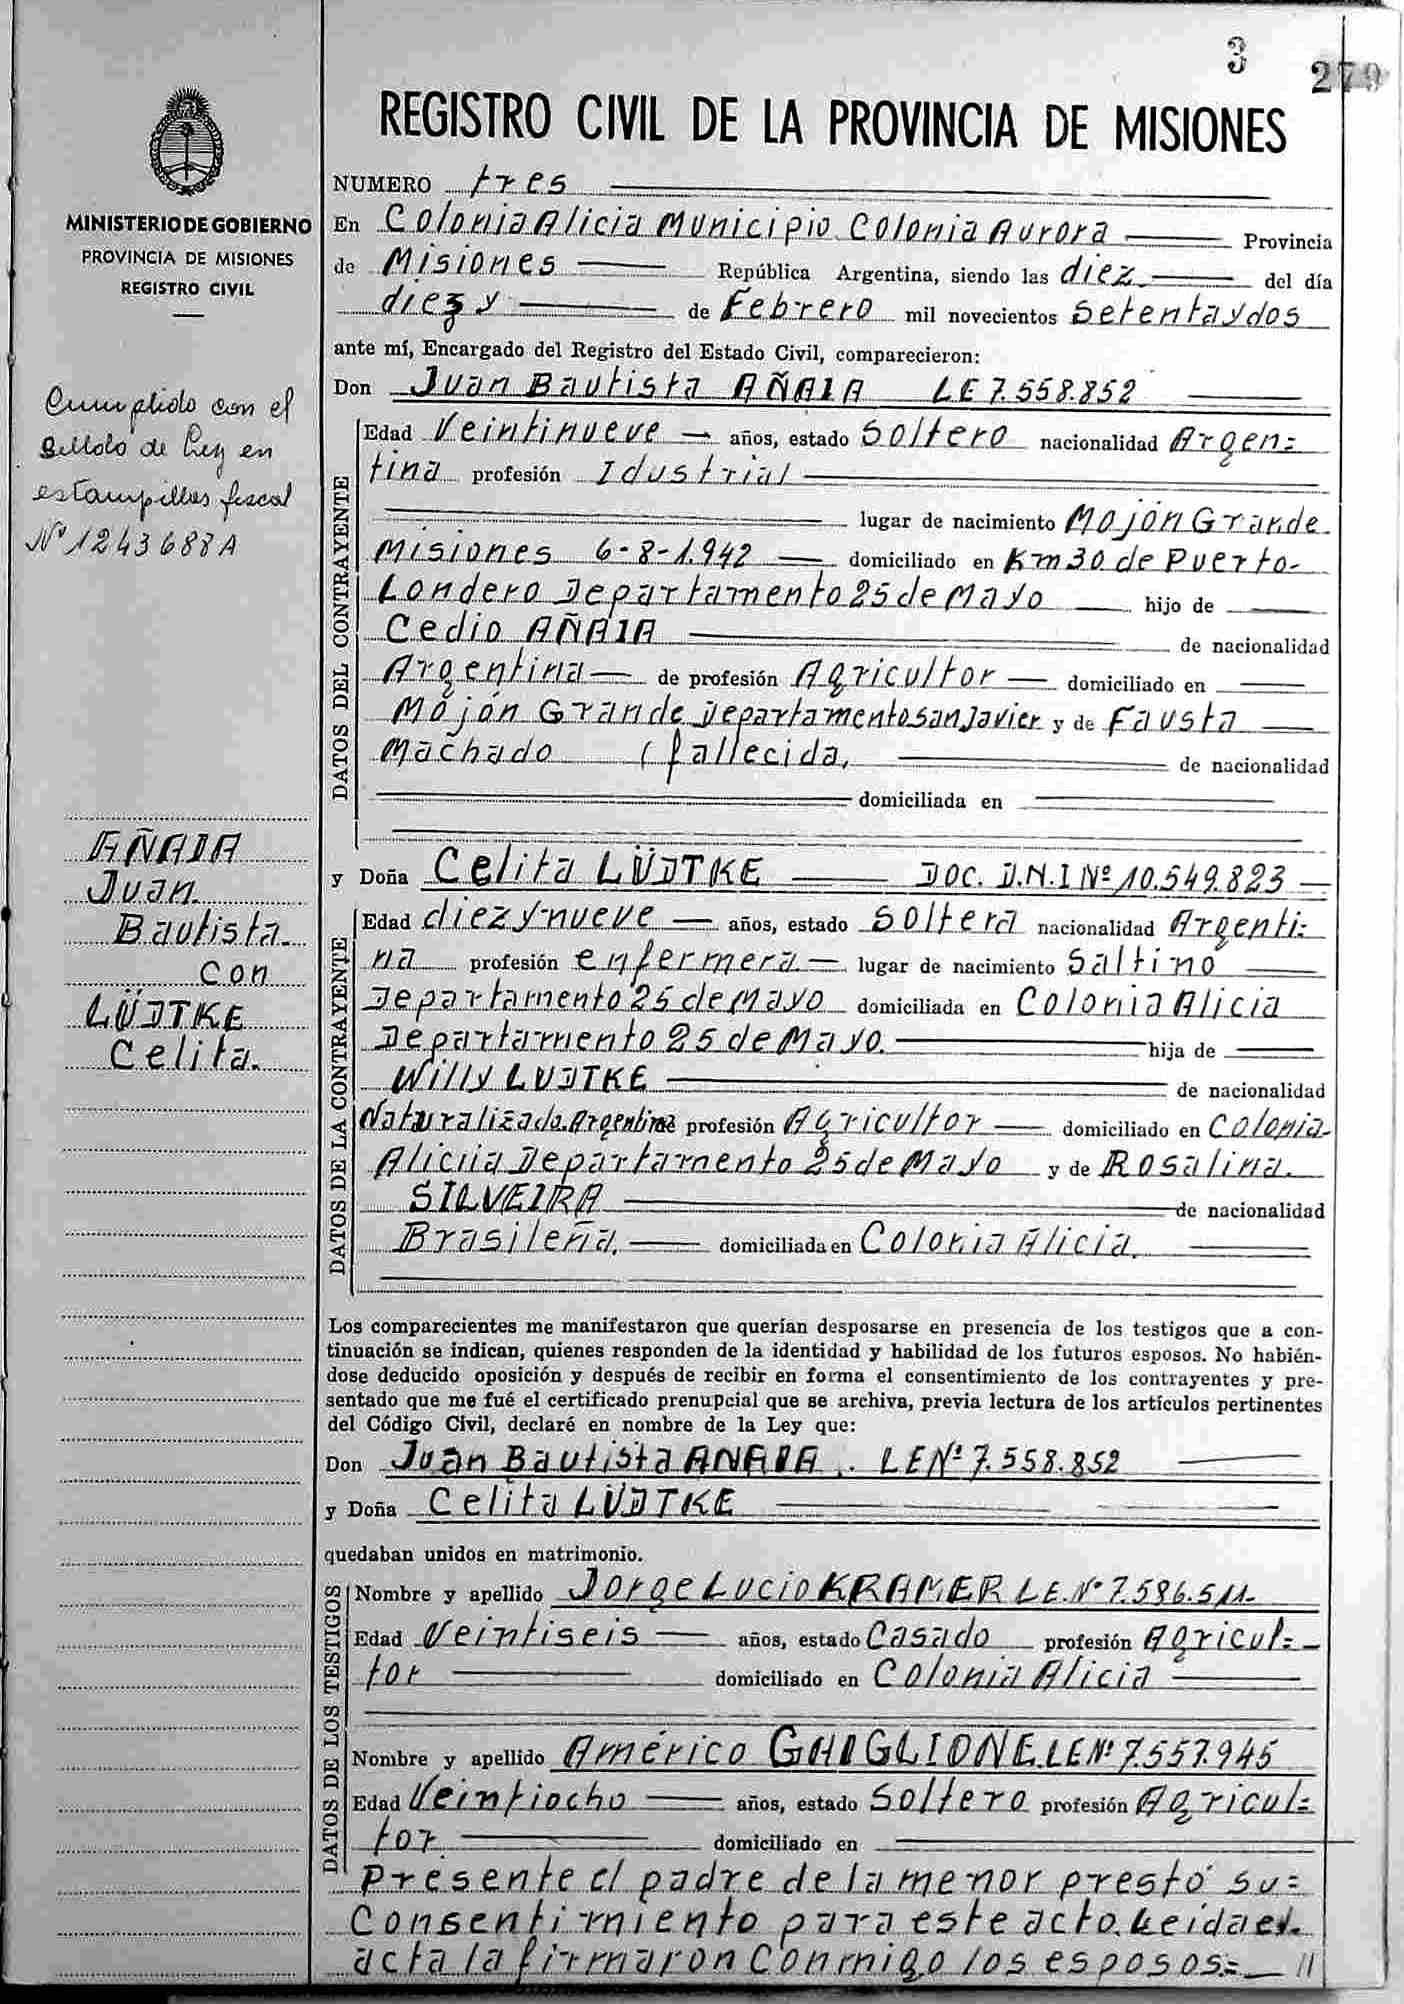 3
279
REGISTRO CIVIL DE LA PROVINCIA DE MISIONES
MINISTERIO DE GOBIERNO
PROVINCIA DE MISIONES
REGISTRO CIVIL
Cumplido con el
Sellado de Ley en
estampillas fiscal
Nº 1243688A
AÑAIA
Juan
Bautista
con
LÜDTKE
Celita.
NUMERO tres
En Colonia Alicia Municipio Colonia Aurora Provincia
de Misiones República Argentina, siendo las diez del día
diez y de Febrero mil novecientos Setentaydos
ante mí, Encargado del Registro del Estado Civil, comparecieron:
Don Juan Bautista AÑAIA LE 7.558.852
DATOS DEL CONTRAYENTE
Edad Veintinueve años, estado Soltero nacionalidad Argen=
tina profesión Idustrial
lugar de nacimiento Mojón Grande
Misiones 6-8-1.942 domiciliado en Km 30 de Puerto
Londero Departamento 25 de Mayo hijo de
Cedio AÑAIA de nacionalidad
Argentina de profesión Agricultor domiciliado en
Mojón Grande Departamento San Javier y de Fausta
Machado (fallecida, de nacionalidad
domiciliada en
y Doña Celita LÜDTKE DOC. D.N.I Nº 10.549.823
DATOS DE LA CONTRAYENTE
Edad diez y nueve años, estado Soltera nacionalidad Argenti=
na profesión enfermera lugar de nacimiento Saltino
Departamento 25 de Mayo domiciliada en Colonia Alicia
Departamento 25 de Mayo. hija de
Willy LUDTKE de nacionalidad
Naturalizado.Argentino profesión Agricultor domiciliado en Colonia
Aliciia Departamento 25 de Mayo y de Rosalina.
SILVEIRA de nacionalidad
Brasileña. domiciliada en Colonia Alicia.
Los comparecientes me manifestaron que querían desposarse en presencia de los testigos que a con-
tinuación se indican, quienes responden de la identidad y habilidad de los futuros esposos. No habién-
dose deducido oposición y después de recibir en forma el consentimiento de los contrayentes y pre-
sentado que me fué el certificado prenupcial que se archiva, previa lectura de los artículos pertinentes
del Código Civil, declaré en nombre de la Ley que:
Don Juan Bautista AÑAIA . LE Nº 7.558.852
y Doña Celita LÜDTKE
quedaban unidos en matrimonio.
DATOS DE LOS TESTIGOS
Nombre y apellido Jorge Lucio KRAMER LE.Nº 7.586.511-
Edad Veintiseis años, estado Casado profesión Agricul=
tor domiciliado en Colonia Alicia
Nombre y apellido Américo GHIGLIONE.LE Nº 7.557.945
Edad Veintiocho años, estado Soltero profesión Agricul=
tor domiciliado en
Presente el padre de la menor prestó su=
Consentimiento para este acto. Leida el
acta la firmaron Conmigo los esposos= //